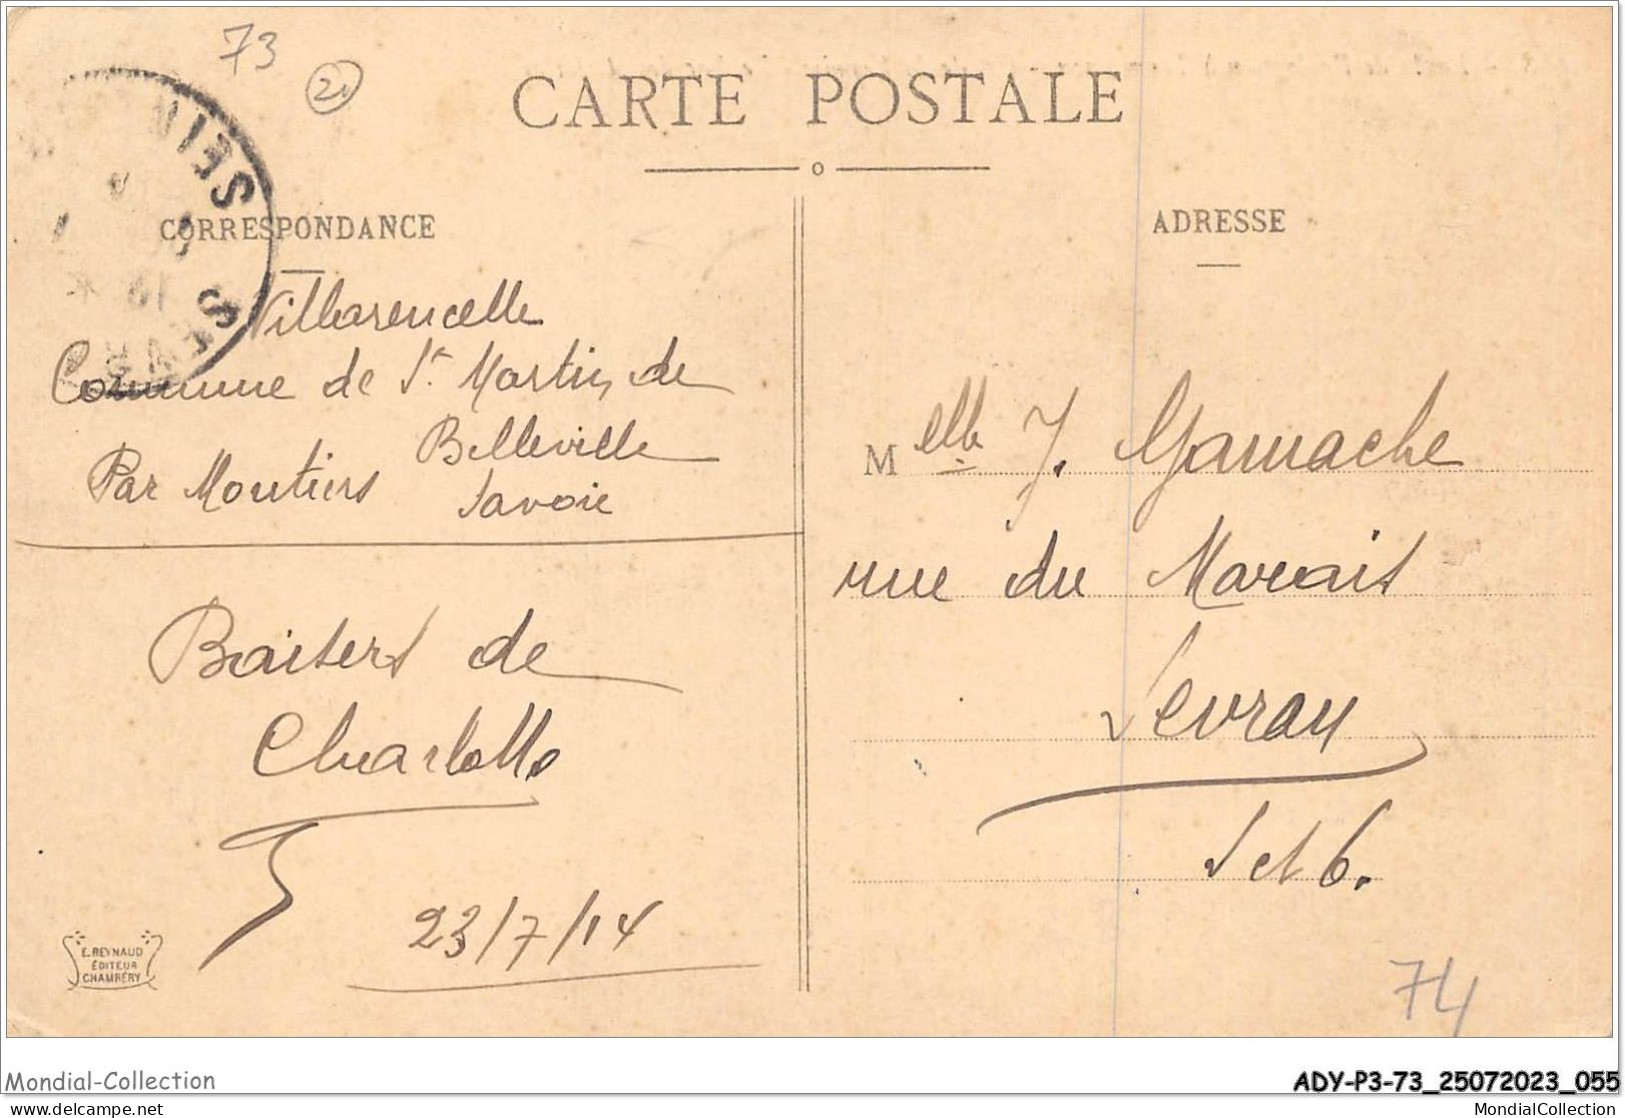 73
21
CARTE POSTALE
CORRESPONDANCE
ADRESSE
Villarencelle
Commune de St. Martin de
Belleville
Par Moutiers
Savoie
Baisers de
Charlotte
23/7/14
E. REYNAUD
ÉDITEUR
CHAMBÉRY
Melle J. Gamache
rue du Marais
Sevran
S et O.
74
Mondial-Collection
www.delcampe.net
ADY-P3-73_25072023_055
MondialCollection